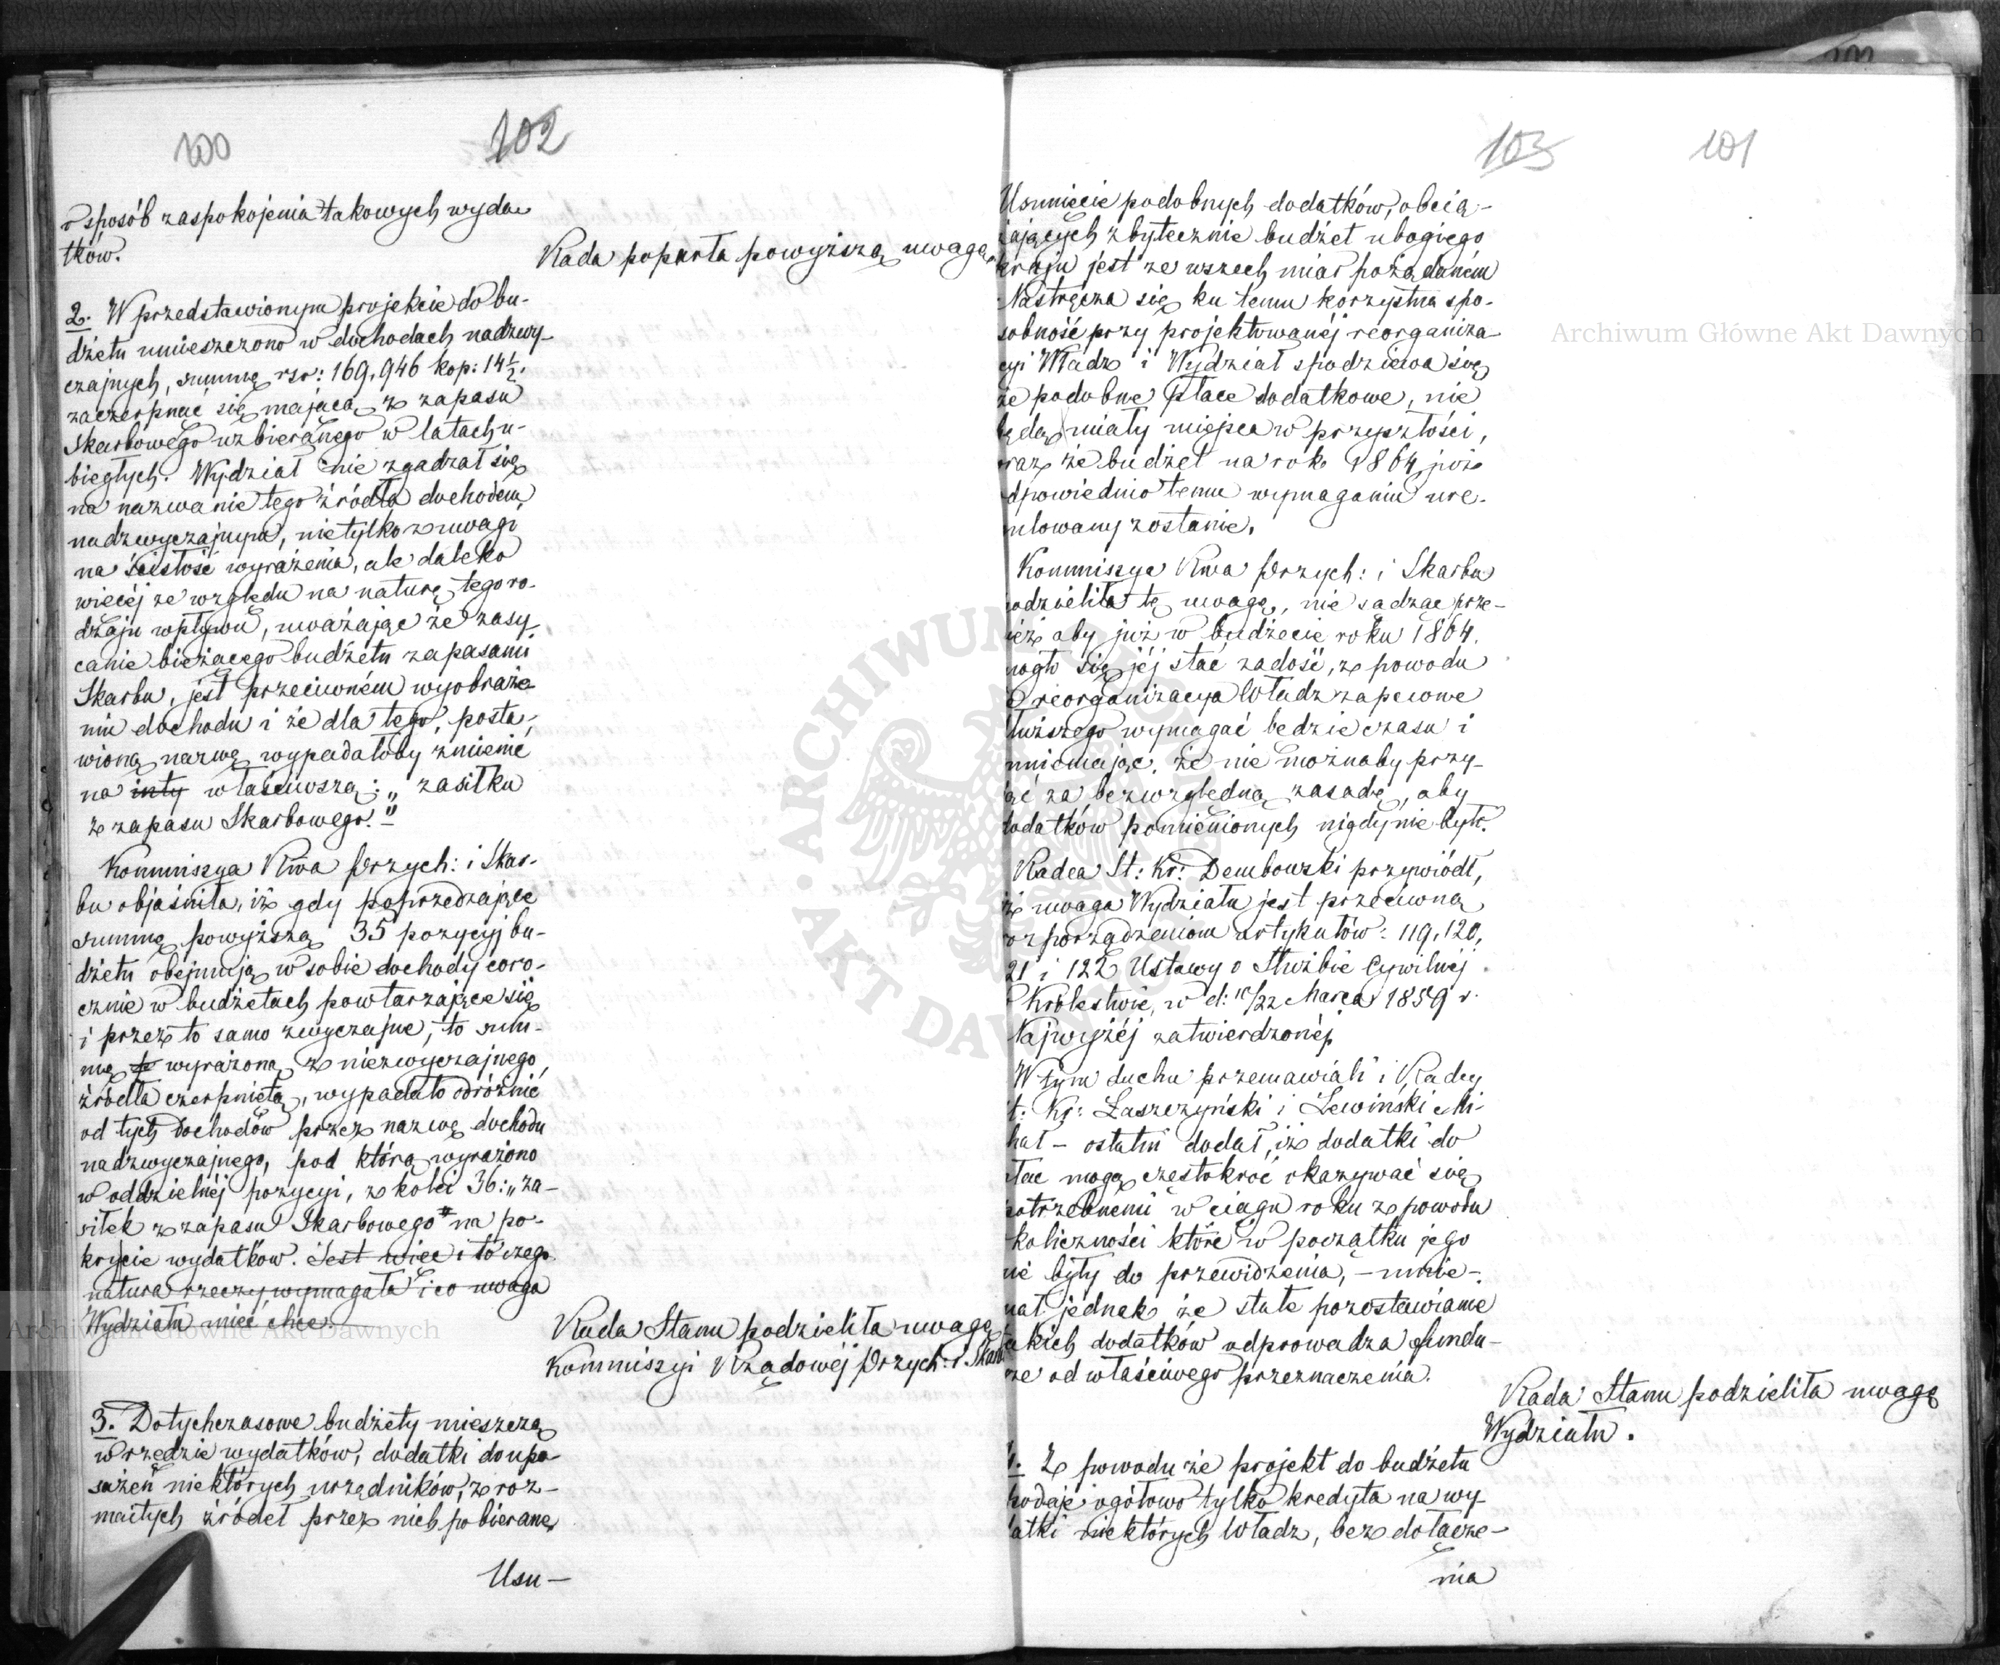 100
102
o sposób zaspokojenia takowych wyda-
tków.
Rada poparła powyższą uwagę.
2. W przedstawionym projekcie do bu-
dżetu umieszczono w dochodach nadzwy-
czajnych, summę rsr: 169,946 kop: 14½,
zaczerpnąć się mającą z zapasu
Skarbowego uzbieranego w latach u-
biegłych. Wydział nie zgadzał się
na nazwanie tego źródła dochodem
nadzwyczajnym, nietylko z uwagi
na ścisłość wyrażenia, ale daleko
więcéj ze względu na naturę tego ro-
dzaju wpływu, uważając że zasy-
canie bieżącego budżetu zapasami
Skarbu, jest przeciwném wyobraże-
niu dochodu i że dla tego, posta-
wioną nazwę wypadałoby zmienić
na inny właściwszą: „zasiłku
z zapasu Skarbowego."
Kommissya Rwa Przych: i Skar-
bu objaśniła, iż gdy poprzedzające
summę powyższą 35 pozycyj bu-
dżetu obejmują w sobie dochody coro-
cznie w budżetach powtarzające się
i przez to samo zwyczajne, to sum-
mę wyrażoną z niezwyczajnego
źródła czerpniętą, wypadało odróżnić
od tych dochodów przez nazwę dochodu
nadzwyczajnego, pod którą wyrażono
w oddzielnéj pozycyi, z kolei 36: „za-
siłek z zapasu Skarbowego" na po-
krycie wydatków. Jest więc i to czego
natura rzeczy wymagała i co uwaga
Wydziału mieć chce.
Rada Stanu podzieliła uwagę
Kommissyi Rządowéj Przych: i Skarbu
3. Dotychczasowe budżety mieszczą
w rzędzie wydatków, dodatki do upo-
sażeń niektórych urzędników, z roz-
maitych źródeł przez nich pobierane,
Usu-
103
101
Usunięcie podobnych dodatków, obcią-
żających zbytecznie budżet ubogiego
kraju jest ze wszech miar pożądaném
Nastręcza się ku temu korzystna spo-
sobność przy projektowanéj reorganiza-
cyi Władz i Wydział spodziewa się
że podobne płace dodatkowe, nie
będą miały miejsca w przyszłości,
oraz że budżet na rok 1864 już
odpowiednio temu wymaganiu ure-
gulowany zostanie.
Kommissya Rwa Przych: i Skarbu
podzieliła tę uwagę, nie sądząc prze-
cież aby już w budżecie roku 1864
mogło się jéj stać zadość, z powodu
że reorganizacya Władz zapewne
dłuższego wymagać będzie czasu i
mniemając, że nie możnaby przy-
jąć za bezwzględną zasadę, aby
dodatków pomienionych nigdy nie było.
Radca St: Kr: Dembowski przywiódł,
że uwaga Wydziału jest przeciwną
rozporządzeniom artykułów: 119, 120,
121 i 122 Ustawy o Służbie Cywilnéj
w Królestwie, w d: 10/22 Marca 1859 r.
Najwyżéj zatwierdzonéj.
W tym duchu przemawiali i Radcy
St: Kr: Łaszczyński i Lewiński Mi-
chał – ostatni dodał, iż dodatki do
płac mogą częstokroć okazywać się
potrzebnemi w ciągu roku z powodu
okoliczności które w początku jego
nie były do przewidzenia, – mnie-
mał jednak że stałe pozostawianie
takich dodatków odprowadza fundu-
sze od właściwego przeznaczenia.
Rada Stanu podzieliła uwagę
Wydziału.
4. Z powodu że projekt do budżetu
podaje ogółowo tylko kredyta na wy-
datki niektórych Władz, bez dołącze-
nia
Archiwum Główne Akt Dawnych
Archiwum Główne Akt Dawnych
ARCHIWUM GŁÓWNE AKT DAWNYCH